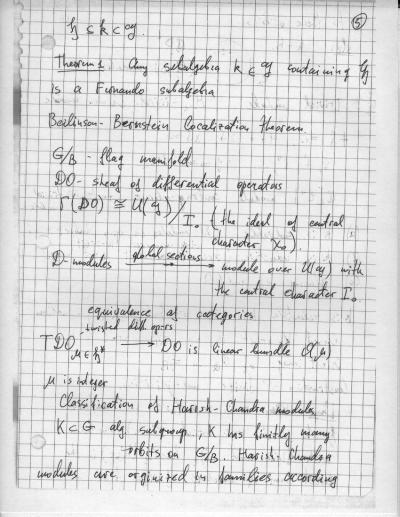 ⑤
𝔥 ≤ k ⊂ 𝔤.
Theorem 1 Any subalgebra k ∈ 𝔤 containing 𝔥
is a Fernando subalgebra
Beilinson-Bernstein Localization Theorem
G/B - flag manifold
DO - sheaf of differential operators
Γ(DO) ≅ U(𝔤)/I₀ (the ideal of central
character χ₀).
D-modules global sections → module over U(𝔤) with
the central character I₀
equivalence of categories
twisted diff. op-rs
TDO μ∈𝔥* → DO is linear bundle O(μ)
μ is integer
Classification of Harish-Chandra modules
K⊂G alg subgroup, K has finitly many
orbits on G/B. Harish-Chandra
modules are orginized in families according